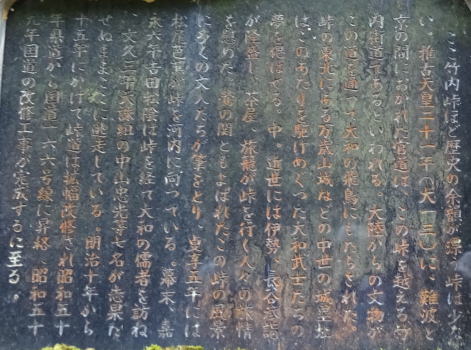 ここ竹内峠ほど歴史の余韻が漂う峠は少な
い。推古天皇二十一年(六一三)に、難波と
京の間におかれた官道は、この峠を越える竹
内街道であるといわれる。大陸からの文物が
この道を通って大和の飛鳥にもたらされた。
峠の東北にある万歳山城などの中世の城塞址
は、このあたりを駆けめぐった大和武士たちの
夢を偲ばせる。中・近世には伊勢、長谷参詣
が隆盛し、茶屋、旅籠が峠を行く人々の旅情
を慰めた。鶯の関ともよばれたこの峠の風景
に多くの文人たちが筆をとり、貞享五年には
松尾芭蕉が峠を河内に向っている。幕末、嘉
永六年吉田松陰は峠を経て大和の儒者を訪ね
、文久三年天誅組の中山忠光等七名が志果た
せぬままここに逃走している。明治十年から
十五年にかけて峠道は拡幅改修され昭和五十
年県道から国道一六六号線に昇格、昭和五十
九年国道の改修工事が完成するに至る。